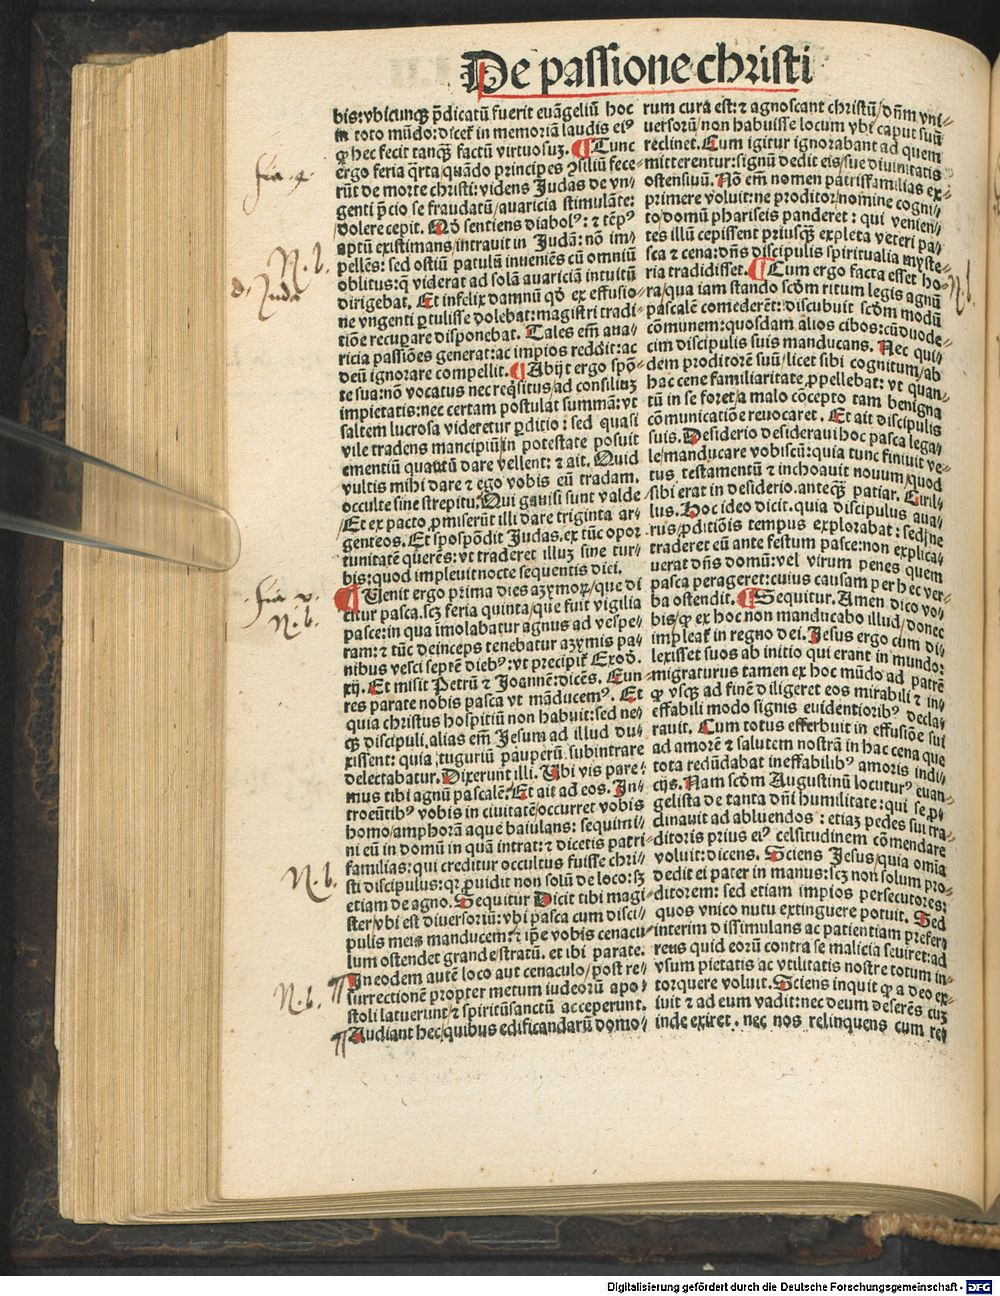 De passione christi
bis: vbicunqȝ p̄dicatū fuerit euāgeliū hoc
in toto mūdo: dicet̉ in memoriā laudis eiꝰ
ꝙ hec fecit tanqȝ factū virtuosuȝ. ¶ Tunc
ergo feria q̄rta/quādo principes ꝯsiliū fece⸗
rūt de morte christi: videns Judas de vn⸗
genti p̄cio se fraudatū/auaricia stimulāte:
dolere cepit. Qd̄ sentiens diabolꝰ: ⁊ tēpꝰ
aptū existimans/intrauit in Judā: nō im⸗
pellēs: sed ostiū patulū inueniēs cū omniū
oblitus: q̄ viderat ad solā auariciā intuitū
dirigebat. Et infelix damnū qd̄ ex effusio⸗
ne vngenti ꝑtulisse dolebat: magistri tradi⸗
tiōe recuꝑare disponebat. Tales em̄ aua⸗
ricia passiōes generat: ac impios reddit: ac
deū ignorare compellit. ¶ Abijt ergo spō⸗
te sua: nō vocatus nec reqͥsitus/ad consiliuȝ
impietatis: nec certam postulat summā: vt
saltem lucrosa videretur ꝑditio: sed quasi
vile tradens mancipiū/in potestate posuit
ementiū quantū dare vellent: ⁊ ait. Quid
vultis mihi dare ⁊ ego vobis eū tradam.
occulte sine strepitu. Qui gauisi sunt valde
Et ex pacto ꝓmiserūt illi dare triginta ar⸗
genteos. Et spospōdit Judas. ex tūc opor
tunitatē querēs: vt traderet illuȝ sine tur⸗
bis: quod impleuit nocte sequentis diei.
¶ Uenit ergo prima dies azymoꝝ/que di
citur pasca. scȝ feria quinta/que fuit vigilia
pasce: in qua imolabatur agnus ad vespe⸗
ram: ⁊ tūc deinceps tenebatur azymis pa⸗
nibus vesci septē diebꝰ: vt precipit̉ Exod̄.
xij. Et misit Petrū ⁊ Joannē: dicēs. Eun⸗
tes parate nobis pasca vt māducemꝰ. Et
quia christus hospitiū non habuit: sed ne⸗
qȝ discipuli. alias em̄ Jesum ad illud du⸗
xissent: quia tuguriū pauperū subintrare
delectabatur. Dixerunt illi. Ubi vis pare⸗
mus tibi agnū pascalē. Et ait ad eos. In⸗
troeūtibꝰ vobis in ciuitatē/occurret vobis
homo/amphorā aque baiulans: sequimi⸗
ni eū in domū in quā intrat: ⁊ dicetis patri
familias: qui creditur occultus fuisse chri⸗
sti discipulus: qꝛ ꝓuidit non solū de loco: sȝ
etiam de agno. Sequitur Dicit tibi magi
ster/vbi est diuersoriū: vbi pasca cum disci⸗
pulis meis manducem: ⁊ ip̄e vobis cenacu
lum ostendet grande/stratū. et ibi parate.
In eodem autē loco aut cenaculo/post re⸗
surrectionē propter metum iudeorū apo⸗
stoli latuerunt/⁊ spiritūsanctū acceperunt.
Audiant hec/quibus edificandarū domo⸗
rum cura est: ⁊ agnoscant christū/dn̄m vni⸗
uersorū/non habuisse locum vbi caput suū
reclinet. Cum igitur ignorabant ad quem
mitterentur: signū dedit eis/sue diuinitatis
ostensiuū. Nō em̄ nomen patrisfamilias ex⸗
primere voluit: ne proditor/nomine cogni⸗
to/domū phariseis panderet: qui venien⸗
tes illū cepissent priusqȝ expleta veteri pa⸗
sca ⁊ cena: dn̄s discipulis spiritualia myste⸗
ria tradidisset. ¶ Cum ergo facta esset ho⸗
ra/qua iam stando scd̄m ritum legis agnū
pascalē comederēt: discubuit scd̄m modū
cōmunem: quosdam alios cibos: cū duode⸗
cim discipulis suis manducans. Nec qui⸗
dem proditorē suū/licet sibi cognitum/ab
hac cene familiaritate ꝓpellebat: vt quan⸗
tū in se foret/a malo cōcepto tam benigna
cōmunicatiōe reuocaret. Et ait discipulis
suis. Desiderio desideraui hoc pasca lega⸗
le/manducare vobiscū: quia tunc finiuit ve⸗
tus testamentū ⁊ inchoauit nouum/quod
sibi erat in desiderio. anteqȝ patiar. Ciril⸗
lus. Hoc ideo dicit. quia discipulus aua⸗
rus/ꝓditiōis tempus explorabat: sed/ne
traderet eū ante festum pasce: non explica⸗
uerat dn̄s domū: vel virum penes quem
pasca perageret: cuius causam per hec ver⸗
ba ostendit. ¶ Sequitur. Amen dico vo⸗
bis/ꝙ ex hoc non manducabo illud/donec
impleat̉ in regno dei. Jesus ergo cum di⸗
lexisset suos ab initio qui erant in mundo:
migraturus tamen ex hoc mūdo ad patrē
ꝙ vsqȝ ad finē diligeret eos mirabili ⁊ in⸗
effabili modo signis euidentioribꝰ decla⸗
rauit. Cum totus efferbuit in effusiōe sui
ad amorē ⁊ salutem nostrā in hac cena que
tota redūdabat ineffabilibꝰ amoris indi⸗
cijs. Nam scd̄m Augustinū locuturꝰ euan⸗
gelista de tanta dn̄i humilitate: qui se ꝓpi⸗
dinauit ad abluendos: etiaȝ pedes sui tra⸗
ditoris prius eiꝰ celsitudinem cōmendare
voluit: dicens. Sciens Jesus/quia om̄ia
dedit ei pater in manus: scȝ non solum pro⸗
ditorem: sed etiam impios persecutores:
quos vnico nutu extinguere potuit. Sed
interim dissimulans ac patientiam prefer⸗
rens quid eorū contra se malicia seuiret: ad
vsum pietatis ac vtilitatis nostre totum in⸗
torquere voluit. Sciens inquit ꝙ a deo ex⸗
iuit ⁊ ad eum vadit: nec deum deserēs cuȝ
inde exiret. nec nos relinquens cum re⸗
N. b.
N. b.
N. b.
N. b.
N. b.
Digitalisierung gefördert durch die Deutsche Forschungsgemeinschaft - DFG